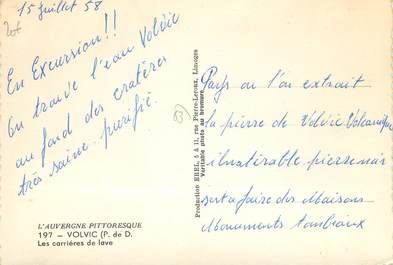 15 Juillet 58
En Excursion!!
On trouve l'eau Volvic
au fond des cratères
très saine. purifié.
L'AUVERGNE PITTORESQUE
197 - VOLVIC (P. de D.
Les carrières de lave
Production EREL, 5 & 11, rue Pierre-Leroux, Limoges
Véritable photo au bromure
63
Pays ou l'on extrait
la pierre de Volvic Volcanique
inaltérable pierre noir
sert a faire des Maisons
Monuments tombeaux